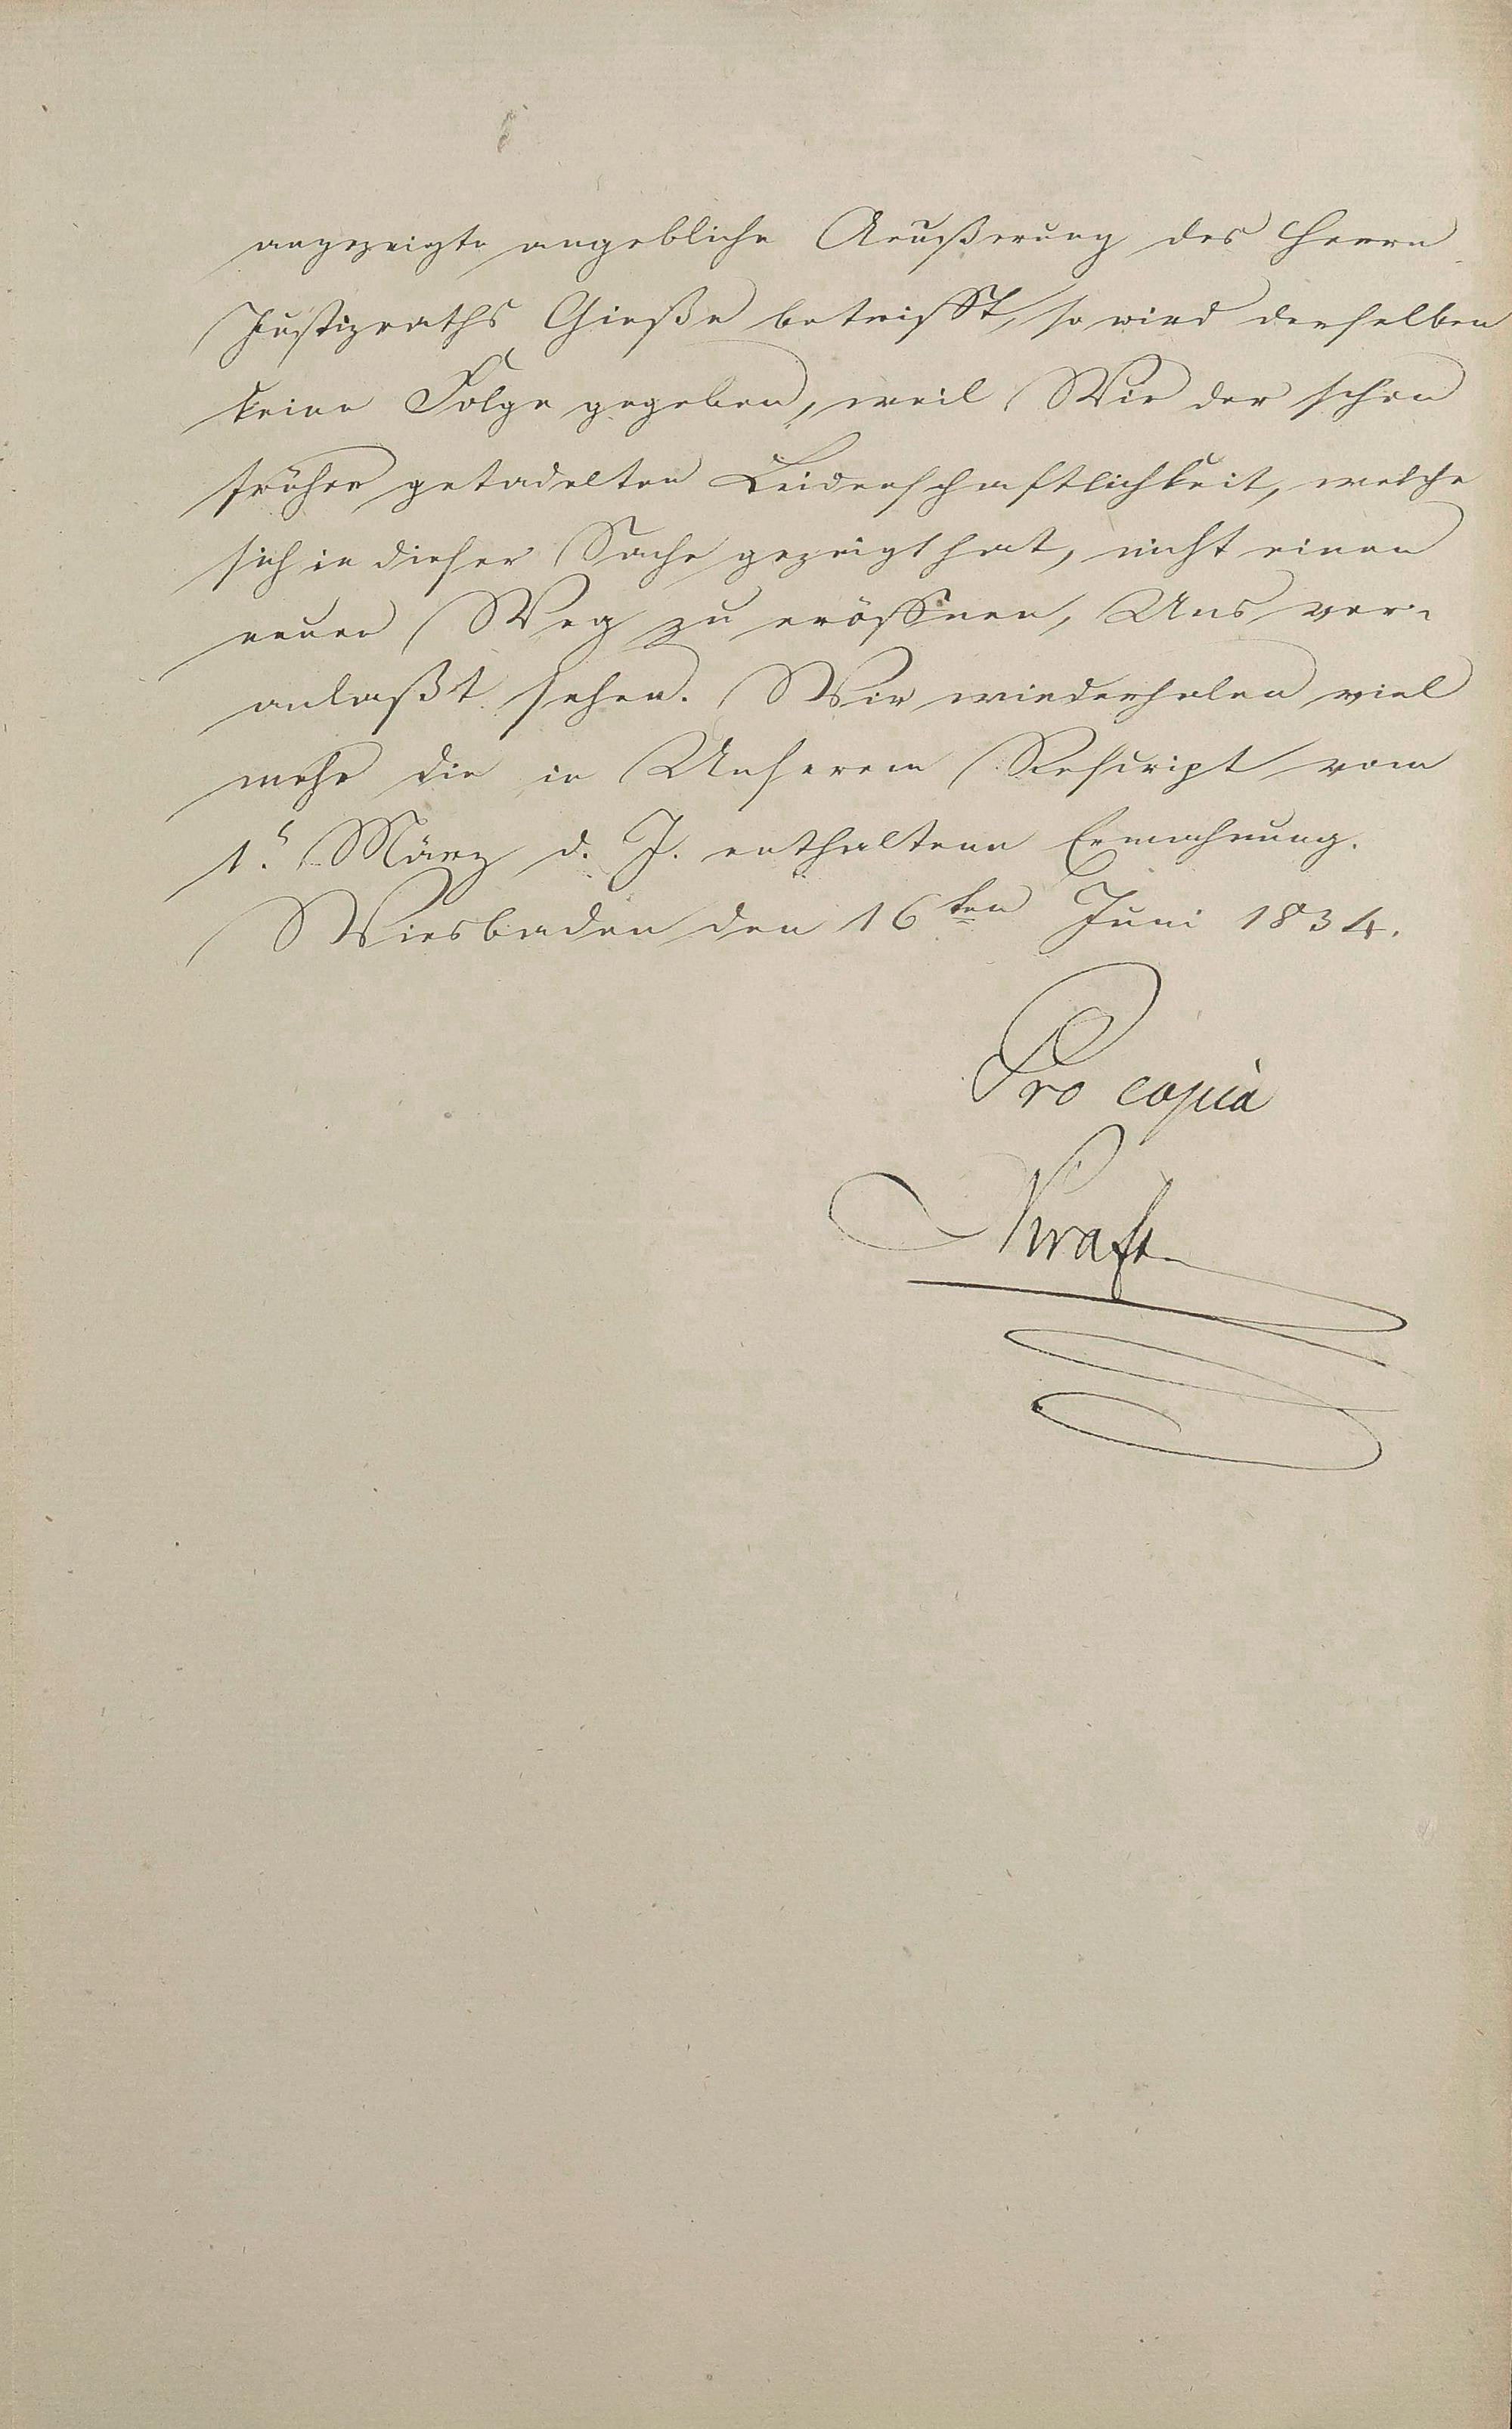 angezeigte angebliche Aeußerung des Herrn
Justizraths Gieße betrifft, so wird derselben
keine Folge gegeben, weil Wir der schon
früher getadelten Leidenschaftlichkeit, welche
sich in dieser Sache gezeigt hat, nicht einen
neuen Weg zu eröffnen, Uns ver-
anlaßt sehen. Wir wiederholen viel
mehr die in Unserem Rescript vom
1. März d. J. enthaltene Ermahnung.
Wiesbaden den 16ten Juni 1834.
Pro copia
Kraft